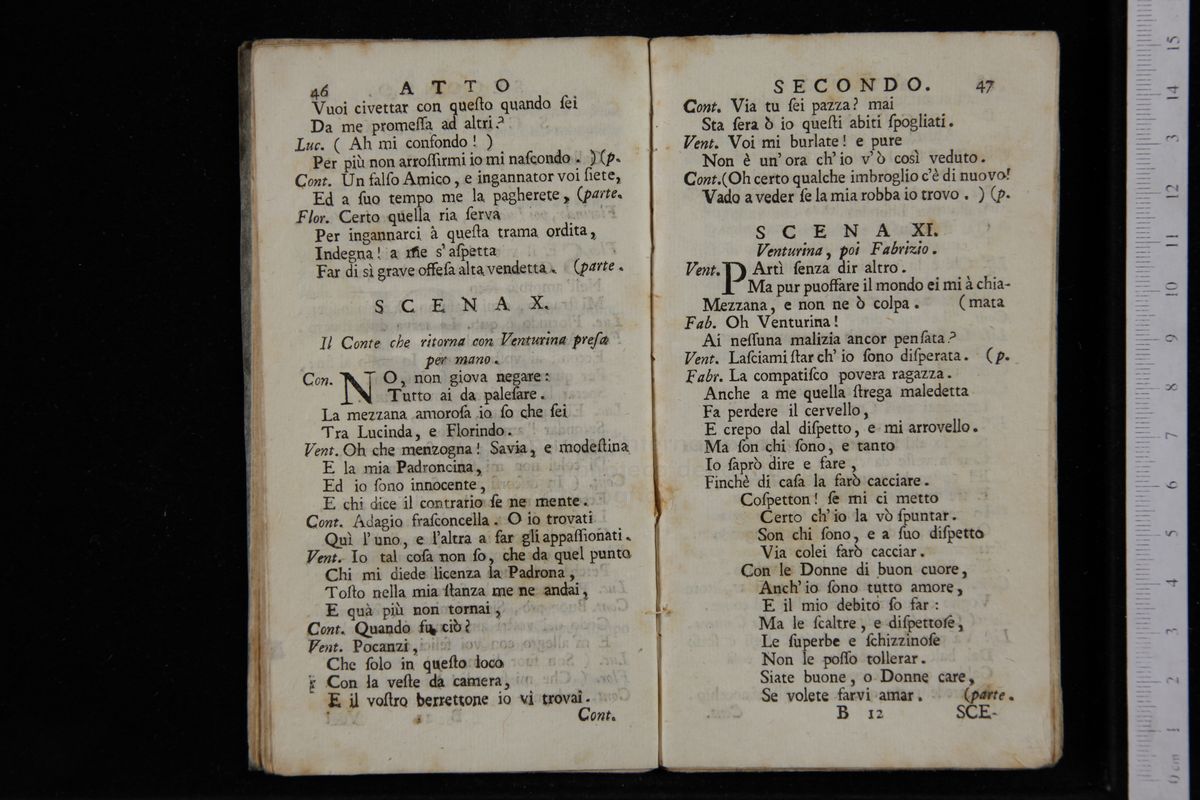 46 ATTO
Vuoi civettar con queſto quando ſei
Da me promeſſa ad altri?
Luc. ( Ah mi confondo! )
Per più non arroſſirmi io mi naſcondo. ) (p.
Cont. Un falſo Amico, e ingannator voi ſiete,
Ed a ſuo tempo me la pagherete, (parte.
Flor. Certo quella ria ſerva
Per ingannarci à queſta trama ordita,
Indegna! a me s'aſpetta
Far di sì grave offeſa alta vendetta. (parte.
SCENA X.
Il Conte che ritorna con Venturina preſa
per mano.
Con. NO, non giova negare:
Tutto ai da paleſare.
La mezzana amoroſa io ſo che ſei
Tra Lucinda, e Florindo.
Vent. Oh che menzogna! Savia, e modeſtina
E la mia Padroncina,
Ed io ſono innocente,
E chi dice il contrario ſe ne mente.
Cont. Adagio fraſconcella. O io trovati
Quì l'uno, e l'altra a far gli appaſſionati.
Vent. Io tal coſa non ſo, che da quel punto
Chi mi diede licenza la Padrona,
Toſto nella mia ſtanza me ne andai,
E quà più non tornai,
Cont. Quando fu ciò?
Vent. Pocanzi,
Che ſolo in queſto loco
Con la veſte da camera,
E il voſtro berrettone io vi trovai.
Cont.
SECONDO. 47
Cont. Via tu ſei pazza? mai
Sta ſera ò io queſti abiti ſpogliati.
Vent. Voi mi burlate! e pure
Non è un'ora ch'io v'ò così veduto.
Cont. (Oh certo qualche imbroglio c'è di nuovo!
Vado a veder ſe la mia robba io trovo. ) (p.
SCENA XI.
Venturina, poi Fabrizio.
Vent. PArtì ſenza dir altro.
Ma pur puoffare il mondo ei mi à chia-
Mezzana, e non ne ò colpa. (mata
Fab. Oh Venturina!
Ai neſſuna malizia ancor penſata?
Vent. Laſciami ſtar ch'io ſono diſperata. (p.
Fabr. La compatiſco povera ragazza.
Anche a me quella ſtrega maledetta
Fa perdere il cervello,
E crepo dal diſpetto, e mi arrovello.
Ma ſon chi ſono, e tanto
Io ſaprò dire e fare,
Finchè di caſa la farò cacciare.
Coſpetton! ſe mi ci metto
Certo ch'io la vò ſpuntar.
Son chi ſono, e a ſuo diſpetto
Via colei farò cacciar.
Con le Donne di buon cuore,
Anch'io ſono tutto amore,
E il mio debito ſo far:
Ma le ſcaltre, e diſpettoſe,
Le ſuperbe e ſchizzinoſe
Non le poſſo tollerar.
Siate buone, o Donne care,
Se volete farvi amar. (parte.
B 12 SCE-